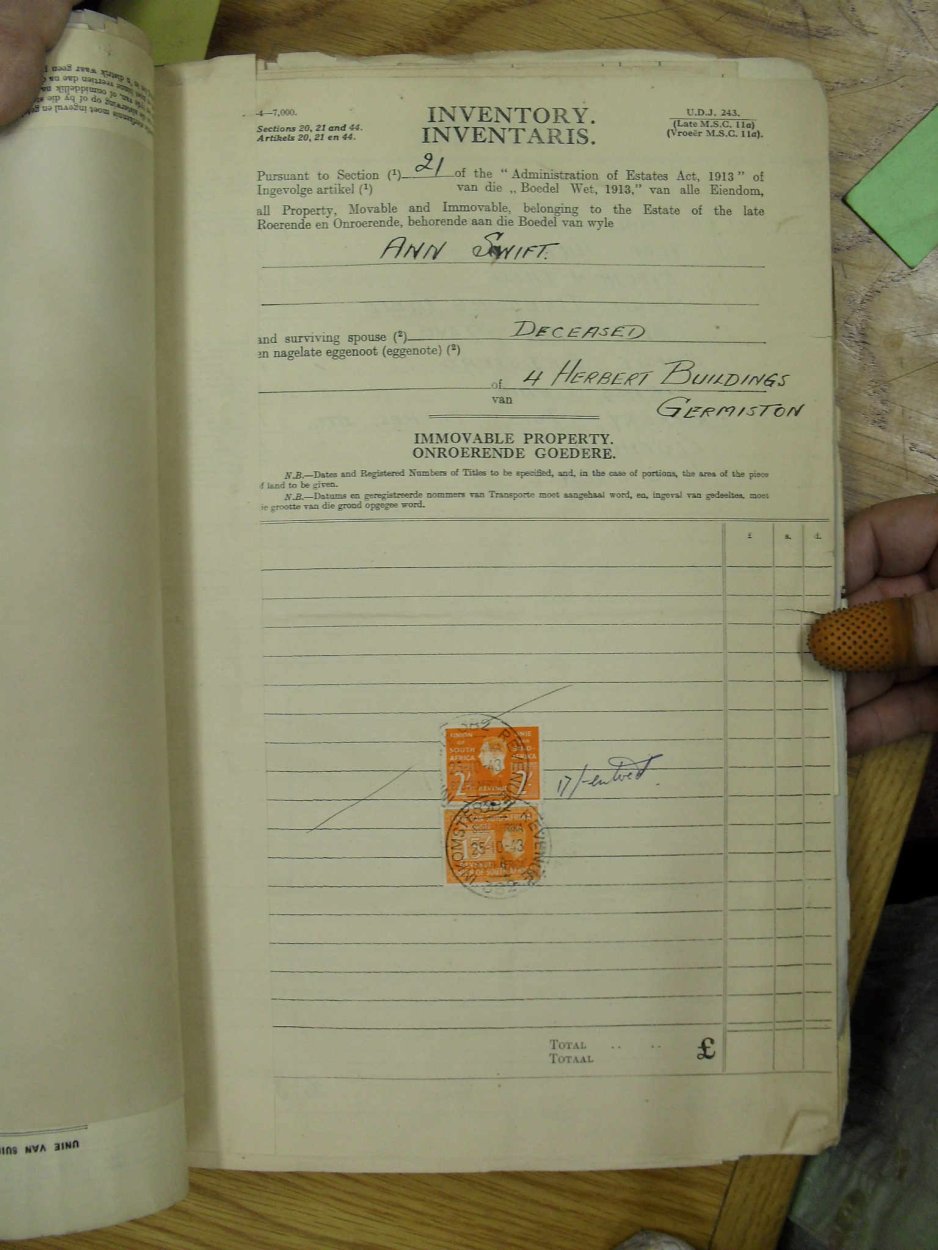 4—7,000.
Sections 20, 21 and 44.
Artikels 20, 21 en 44.
INVENTORY.
INVENTARIS.
U.D.J. 243.
(Late M.S.C. 11a)
(Vroeër M.S.C. 11a).
Pursuant to Section (¹) 21 of the "Administration of Estates Act, 1913" of
Ingevolge artikel (¹) van die „Boedel Wet, 1913," van alle Eiendom,
all Property, Movable and Immovable, belonging to the Estate of the late
Roerende en Onroerende, behorende aan die Boedel van wyle
ANN SWIFT.
and surviving spouse (²) DECEASED
en nagelate eggenoot (eggenote) (²)
of 4 HERBERT BUILDINGS
van
GERMISTON
IMMOVABLE PROPERTY.
ONROERENDE GOEDERE.
N.B.—Dates and Registered Numbers of Titles to be specified, and, in the case of portions, the area of the piece
of land to be given.
N.B.—Datums en geregistreerde nommers van Transporte moet aangehaal word, en, ingeval van gedeeltes, moet
die grootte van die grond opgegee word.
£ s. d.
UNION OF SOUTH AFRICA
UNIE VAN SUID-AFRIKA
2' 2'
REVENUE
17/-
25-10-43
REVENUE
TOTAL .. .. £
TOTAAL
UNIE VAN SUI